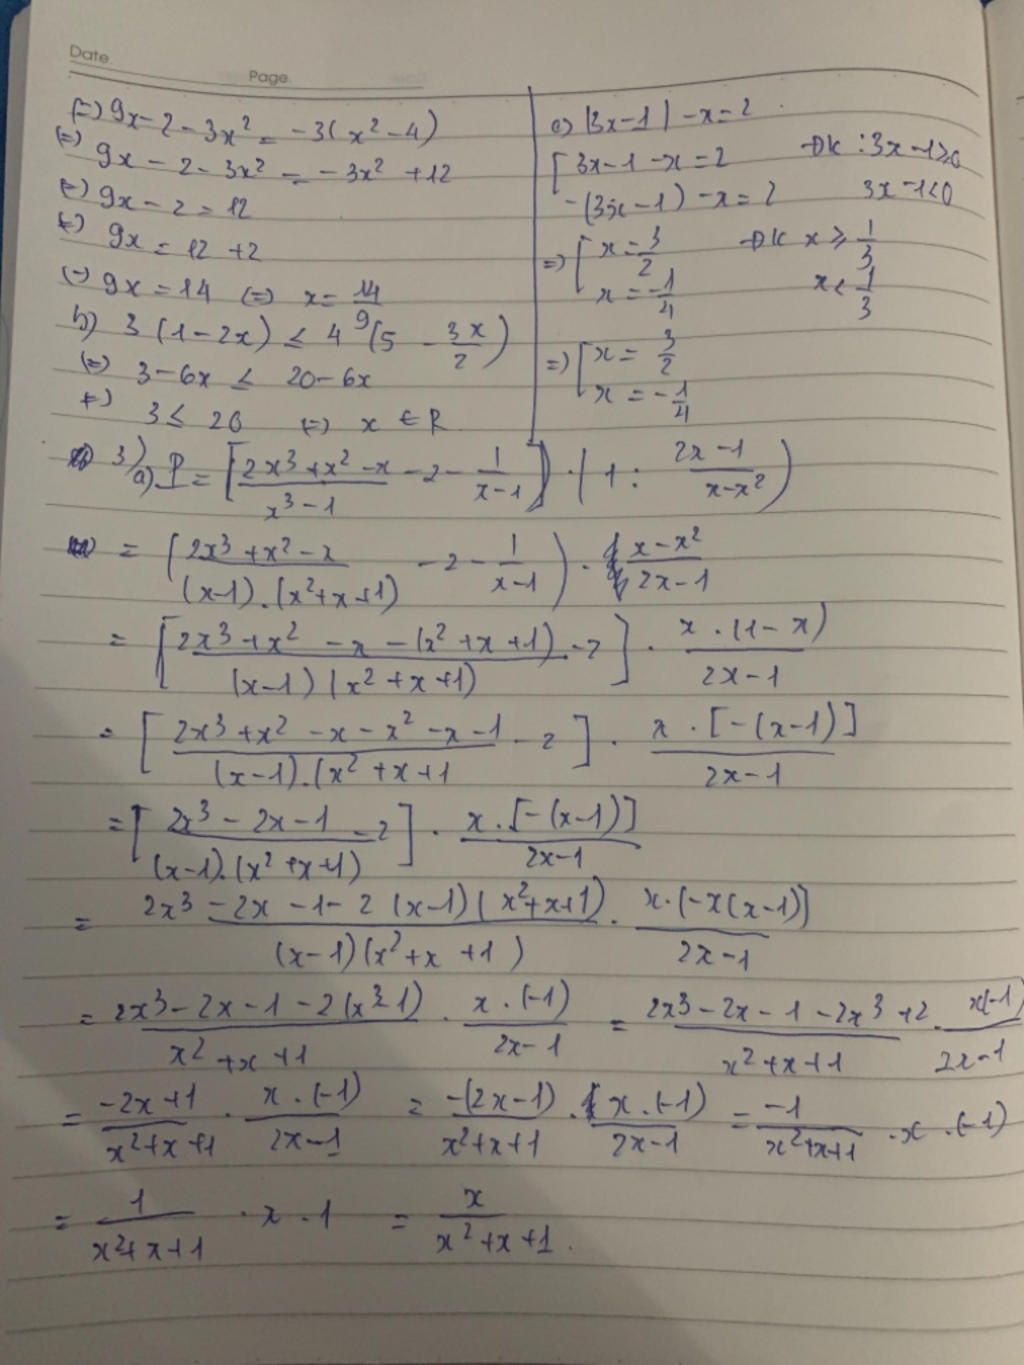 Date
Page
(=) 9x - 2 - 3x² = -3(x² - 4)
(=) 9x - 2 - 3x² = -3x² + 12
(=) 9x - 2 = 12
(=) 9x = 12 + 2
(=) 9x = 14 (=) x = 14/9
b) 3(1 - 2x) ≤ 4(5 - 3x/2)
(=) 3 - 6x ≤ 20 - 6x
(=) 3 ≤ 20 (=) x ∈ R
c) |3x - 1| - x = 2
[3x - 1 - x = 2 ĐK: 3x - 1 ≥ 0
-(3x - 1) - x = 2 3x - 1 < 0
=) [x = 3/2 ĐK x ≥ 1/3
x = -1/4 x < 1/3
=) [x = 3/2
x = -1/4
3) a) P = [(2x³ + x² - x)/(x³ - 1) - 2 - 1/(x - 1)] · (1 : (2x - 1)/(x - x²))
= [(2x³ + x² - x)/((x-1).(x² + x + 1)) - 2 - 1/(x - 1)] · (x - x²)/(2x - 1)
= [(2x³ + x² - x - (x² + x + 1))/((x-1)(x² + x + 1)) - 2] · (x . (1 - x))/(2x - 1)
= [(2x³ + x² - x - x² - x - 1)/((x-1).(x² + x + 1) - 2] · (x . [-(x-1)])/(2x - 1)
= [(2x³ - 2x - 1)/((x-1).(x² + x + 1)) - 2] · (x . [-(x-1)])/(2x - 1)
= (2x³ - 2x - 1 - 2(x-1)(x² + x + 1))/((x-1)(x² + x + 1)) · (x . (-x(x-1)])/(2x - 1)
= (2x³ - 2x - 1 - 2(x³ - 1))/(x² + x + 1) · (x . (-1))/(2x - 1) = (2x³ - 2x - 1 - 2x³ + 2)/(x² + x + 1) · (x(-1))/(2x - 1)
= (-2x + 1)/(x² + x + 1) · (x . (-1))/(2x - 1) = (-(2x - 1))/(x² + x + 1) · (x . (-1))/(2x - 1) = -1/(x² + x + 1) . x . (-1)
= 1/(x² + x + 1) · x . 1 = x/(x² + x + 1).